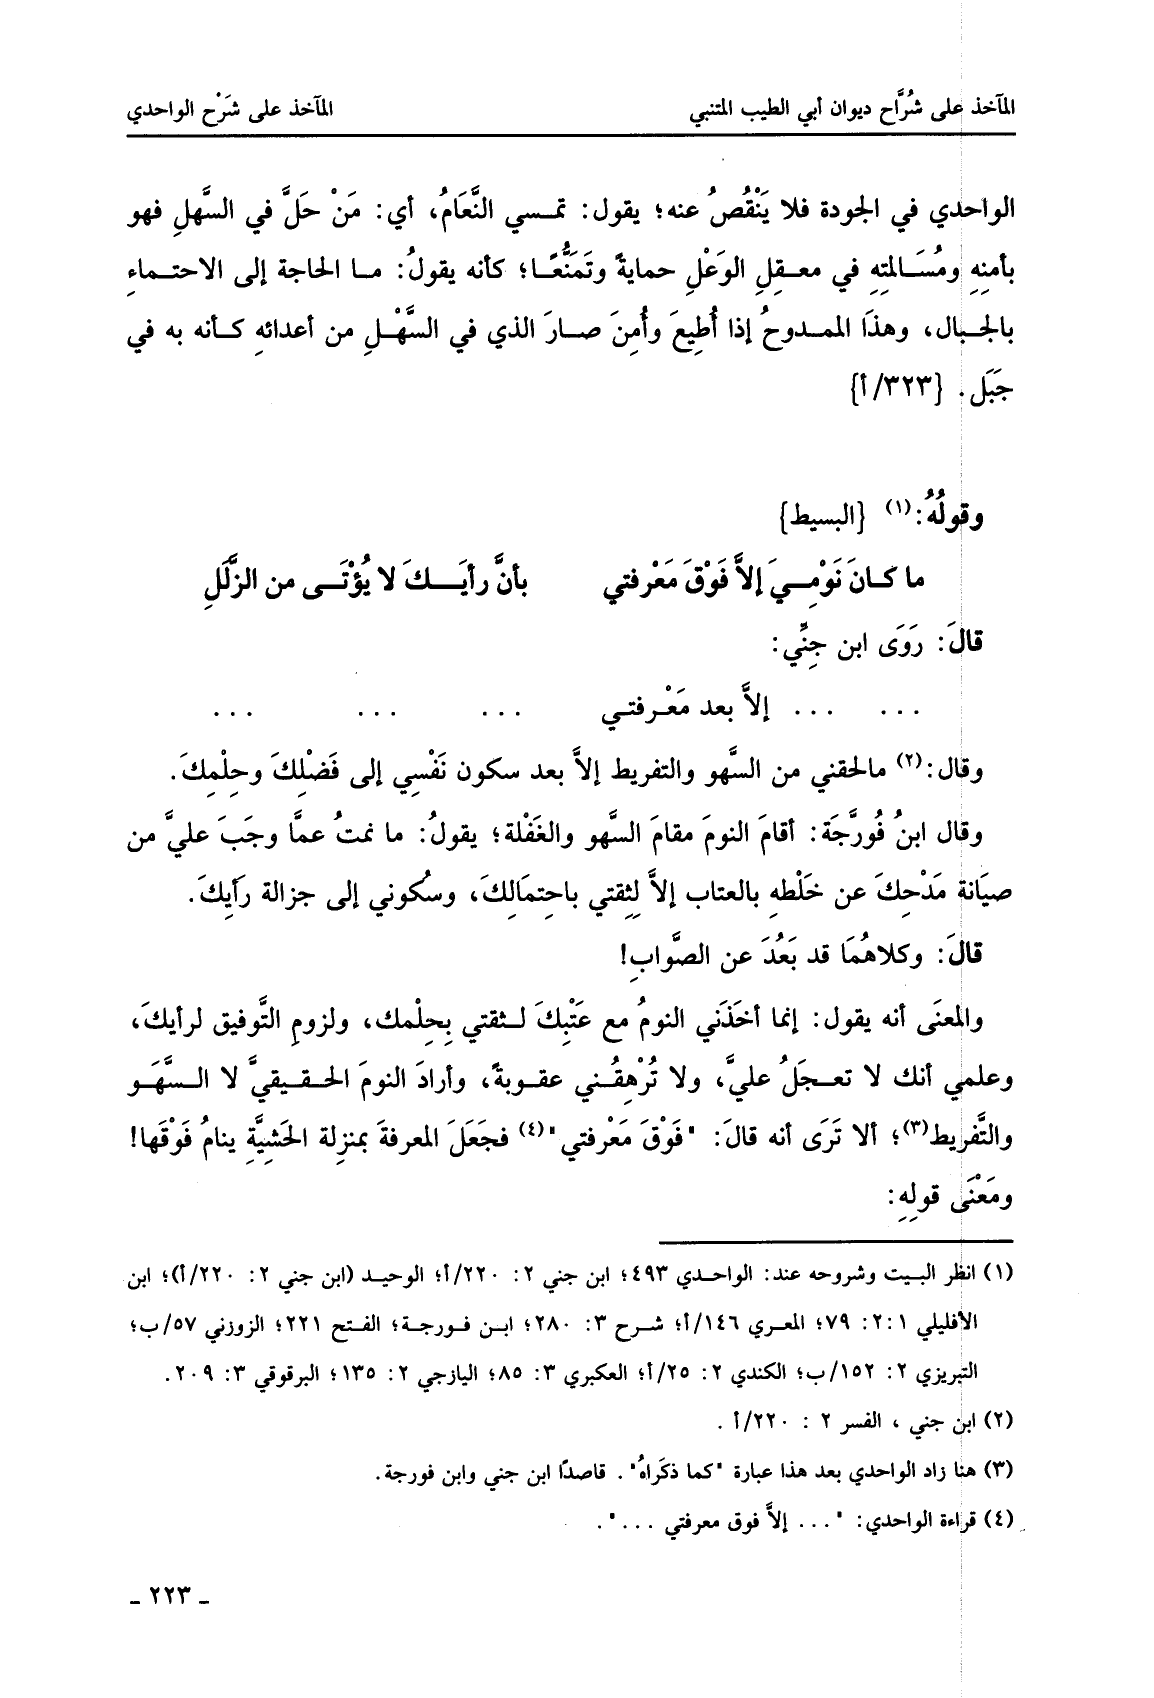 المآخذ على شُرَّاح ديوان أبي الطيب المتنبي
المآخذ على شَرْح الواحدي
الواحدي في الجودة فلا يَنْقُصُ عنه؛ يقول: تمسي النَّعَامُ، أي: مَنْ حَلَّ في السَّهلِ فهو
بأمنِهِ ومُسَالمتِهِ في معقلِ الوَعْلِ حمايةً وتَمَنُّعًا؛ كأنه يقولُ: ما الحاجة إلى الاحتماءِ
بالجبال، وهذا الممدوحُ إذا أُطِيعَ وأُمِنَ صارَ الذي في السَّهْلِ من أعدائهِ كأنه به في
جَبَل. {٣٢٣/أ}
وقولُهُ:(١) {البسيط}
ما كانَ نَوْمِيَ إلاَّ فَوْقَ مَعْرفتي بأنَّ رأيَكَ لا يُؤْتَى من الزَّلَلِ
قالَ: رَوَى ابن جِنِّي:
... ... إلاَّ بعد مَعْرفتي ... ... ...
وقال:(٢) مالحقني من السَّهو والتفريط إلاَّ بعد سكون نَفْسِي إلى فَضْلِكَ وحِلْمِكَ.
وقال ابنُ فُورَّجَة: أقامَ النومَ مقامَ السَّهو والغَفْلة؛ يقولُ: ما نمتُ عمَّا وجَبَ عليَّ من
صيَانة مَدْحِكَ عن خَلْطهِ بالعتاب إلاَّ لِثِقتي باحتِمَالِكَ، وسكُوني إلى جزالة رَأيِكَ.
قالَ: وكلاهُمَا قد بَعُدَ عن الصَّوابِ!
والمعنَى أنه يقول: إنما أخَذَني النومُ مع عَتْبِكَ لثقتي بِحِلْمك، ولزومِ التَّوفيق لرأيكَ،
وعلمي أنك لا تعجَلُ عليَّ، ولا تُرْهِقُني عقوبةً، وأرادَ النومَ الحقيقيَّ لا السَّهْو
والتَّفريط(٣)؛ ألا تَرَى أنه قالَ: "فَوْقَ مَعْرفتي"(٤) فجَعَلَ المعرفةَ بمنزِلة الحَشِيَّةِ ينامُ فَوْقَها!
ومَعْنَى قولِهِ:
(١) انظر البيت وشروحه عند: الواحدي ٤٩٣؛ ابن جني ٢: ٢٢٠/أ؛ الوحيد (ابن جني ٢: ٢٢٠/أ)؛ ابن
الأفليلي ٢:١: ٧٩؛ المعري ١٤٦/أ؛ شرح ٣: ٢٨٠؛ ابن فورجة؛ الفتح ٢٢١؛ الزوزني ٥٧/ب؛
التبريزي ٢: ١٥٢/ب؛ الكندي ٢: ٢٥/أ؛ العكبري ٣: ٨٥؛ اليازجي ٢: ١٣٥؛ البرقوقي ٣: ٢٠٩.
(٢) ابن جني ، الفسر ٢ : ٢٢٠/أ .
(٣) هنا زاد الواحدي بعد هذا عبارة "كما ذكَراهُ". قاصدًا ابن جني وابن فورجة.
(٤) قراءة الواحدي: "... إلاَّ فوق معرفتي ...".
ـ ٢٢٣ ـ